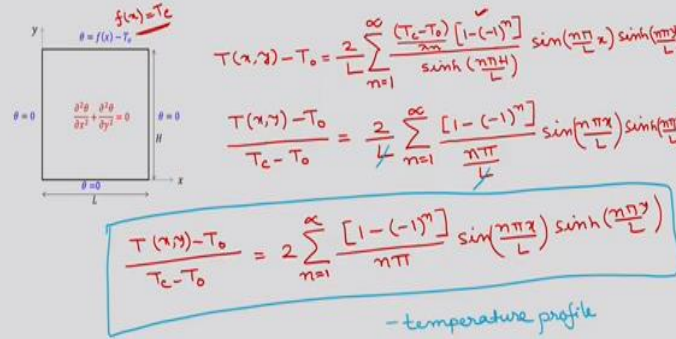 f(x) = Tc
y
θ = f(x) − T₀
θ = 0
∂²θ/∂x² + ∂²θ/∂y² = 0
θ = 0
H
θ=0
x
L
T(x,y) − T₀ = 2/L ∞ Σ n=1 (Tc−T₀)/λn [1−(−1)ⁿ] / sinh(nπH/L) sin(nπ/L x) sinh(nπy
T(x,y) − T₀ / Tc − T₀ = 2/L ∞ Σ n=1 [1 − (−1)ⁿ] / nπ/L sin(nπx/L) sinh(nπ
T(x,y) − T₀ / Tc − T₀ = 2 ∞ Σ n=1 [1 − (−1)ⁿ] / nπ sin(nπx/L) sinh(nπy/L)
- temperature profile